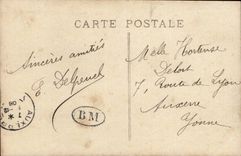 CARTE POSTALE
Sincères amitiés
E. Delpeuch
BM
Melle Hortense
Delort
7, Route de Lyon
Auxerre
Yonne